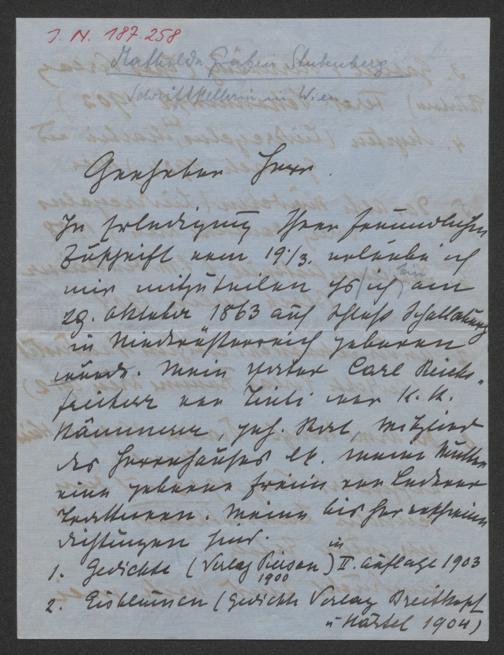 I. N. 187.258
Mathilde Gräfin Stubenberg
Schriftstellerin in Wien
Geehrter Herr.
In Erledigung Ihrer freundlichen
Zuschrift vom 19./3. erlaube ich
mir mitzuteilen daß ich am
29. Oktober 1863 auf Schloß Schallaburg
in Niederösterreich geboren
wurde. Mein Vater Carl Reichs-
freiherr von Tinti war K. K.
Kämmerer, geh. Rat, Mitglied
des Herrenhauses etc. meine Mutter
eine geborene Freiin von
Meine bis her
Dichtungen sind.
1. Gedichte (Verlag Pierson 1900) in II. Auflage 1903
2. Eisblumen (Gedichte Verlag Breitkopf
u Härtel 1904)